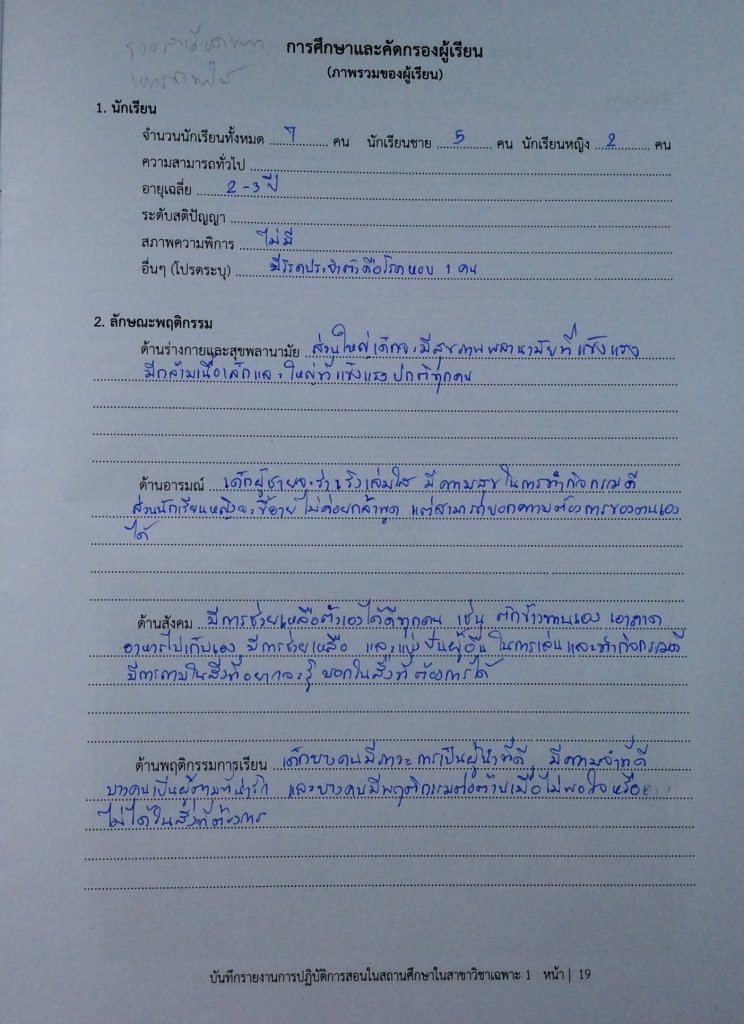 การศึกษาและคัดกรองผู้เรียน
(ภาพรวมของผู้เรียน)
1. นักเรียน
จำนวนนักเรียนทั้งหมด 7 คน นักเรียนชาย 5 คน นักเรียนหญิง 2 คน
ความสามารถทั่วไป
อายุเฉลี่ย 2-3 ปี
ระดับสติปัญญา
สภาพความพิการ ไม่มี
อื่นๆ (โปรดระบุ) มีโรคประจำตัวคือโรคหอบ 1 คน
2. ลักษณะพฤติกรรม
ด้านร่างกายและสุขพลานามัย ส่วนใหญ่เด็กจะมีสุขภาพพลานามัยที่แข็งแรง
มีกล้ามเนื้อเล็กและใหญ่ที่แข็งแรงปกติทุกคน
ด้านอารมณ์ เด็กผู้ชายจะร่าเริงแจ่มใส มีความสุขในการทำกิจกรรมดี
ส่วนนักเรียนหญิงจะขี้อายไม่ค่อยกล้าพูด แต่สามารถบอกความต้องการของตนเอง
ได้
ด้านสังคม มีการช่วยเหลือตัวเองได้ดีทุกคน เช่น ตักข้าวทานเอง เอาถาด
อาหารไปเก็บเอง มีการช่วยเหลือ และแบ่งปันผู้อื่น ในการเล่นและทำกิจกรรมดี
มีการถามในสิ่งที่อยากจะรู้ บอกในสิ่งที่ต้องการได้
ด้านพฤติกรรมการเรียน เด็กบางคนมีภาวะการเป็นผู้นำที่ดี มีความจำที่ดี
บางคนเป็นผู้ตามที่น่ารัก และบางคนมีพฤติกรรมต่อต้านเมื่อไม่พอใจหรือ
ไม่ได้ในสิ่งที่ต้องการ
บันทึกรายงานการปฏิบัติการสอนในสถานศึกษาในสาขาวิชาเฉพาะ 1 หน้า | 19